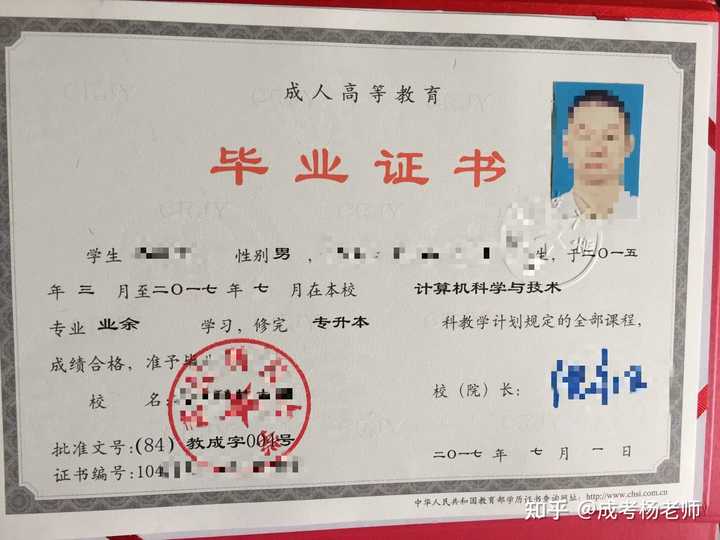 成人高等教育
毕业证书
学生 性别男， 生，于二〇一五
年三月至二〇一七年七月在本校 计算机科学与技术
专业 业余 学习，修完 专升本 科教学计划规定的全部课程，
成绩合格，准予毕
校 名：
校（院）长：
批准文号：(84) 教成字001号
二〇一七 年 七 月 一 日
证书编号：104
中华人民共和国教育部学历证书查询网址：http://www.chsi.com.cn
知乎 @成考杨老师